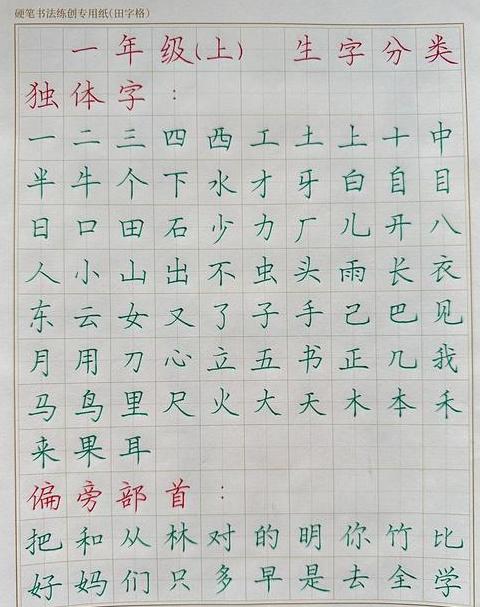 硬笔书法练创专用纸(田字格)
一年级(上) 生字分类
独体字:
一二三四西工土上十中
半牛个下水才牙白自目
日口田石少力厂儿开八
人小山出不虫头雨长衣
东云女又了子手己巴见
月用刀心立五书正几我
马鸟里尺火大天木本禾
来果耳
偏旁部首:
把和从林对的明你竹比
好妈们只多早是去全学